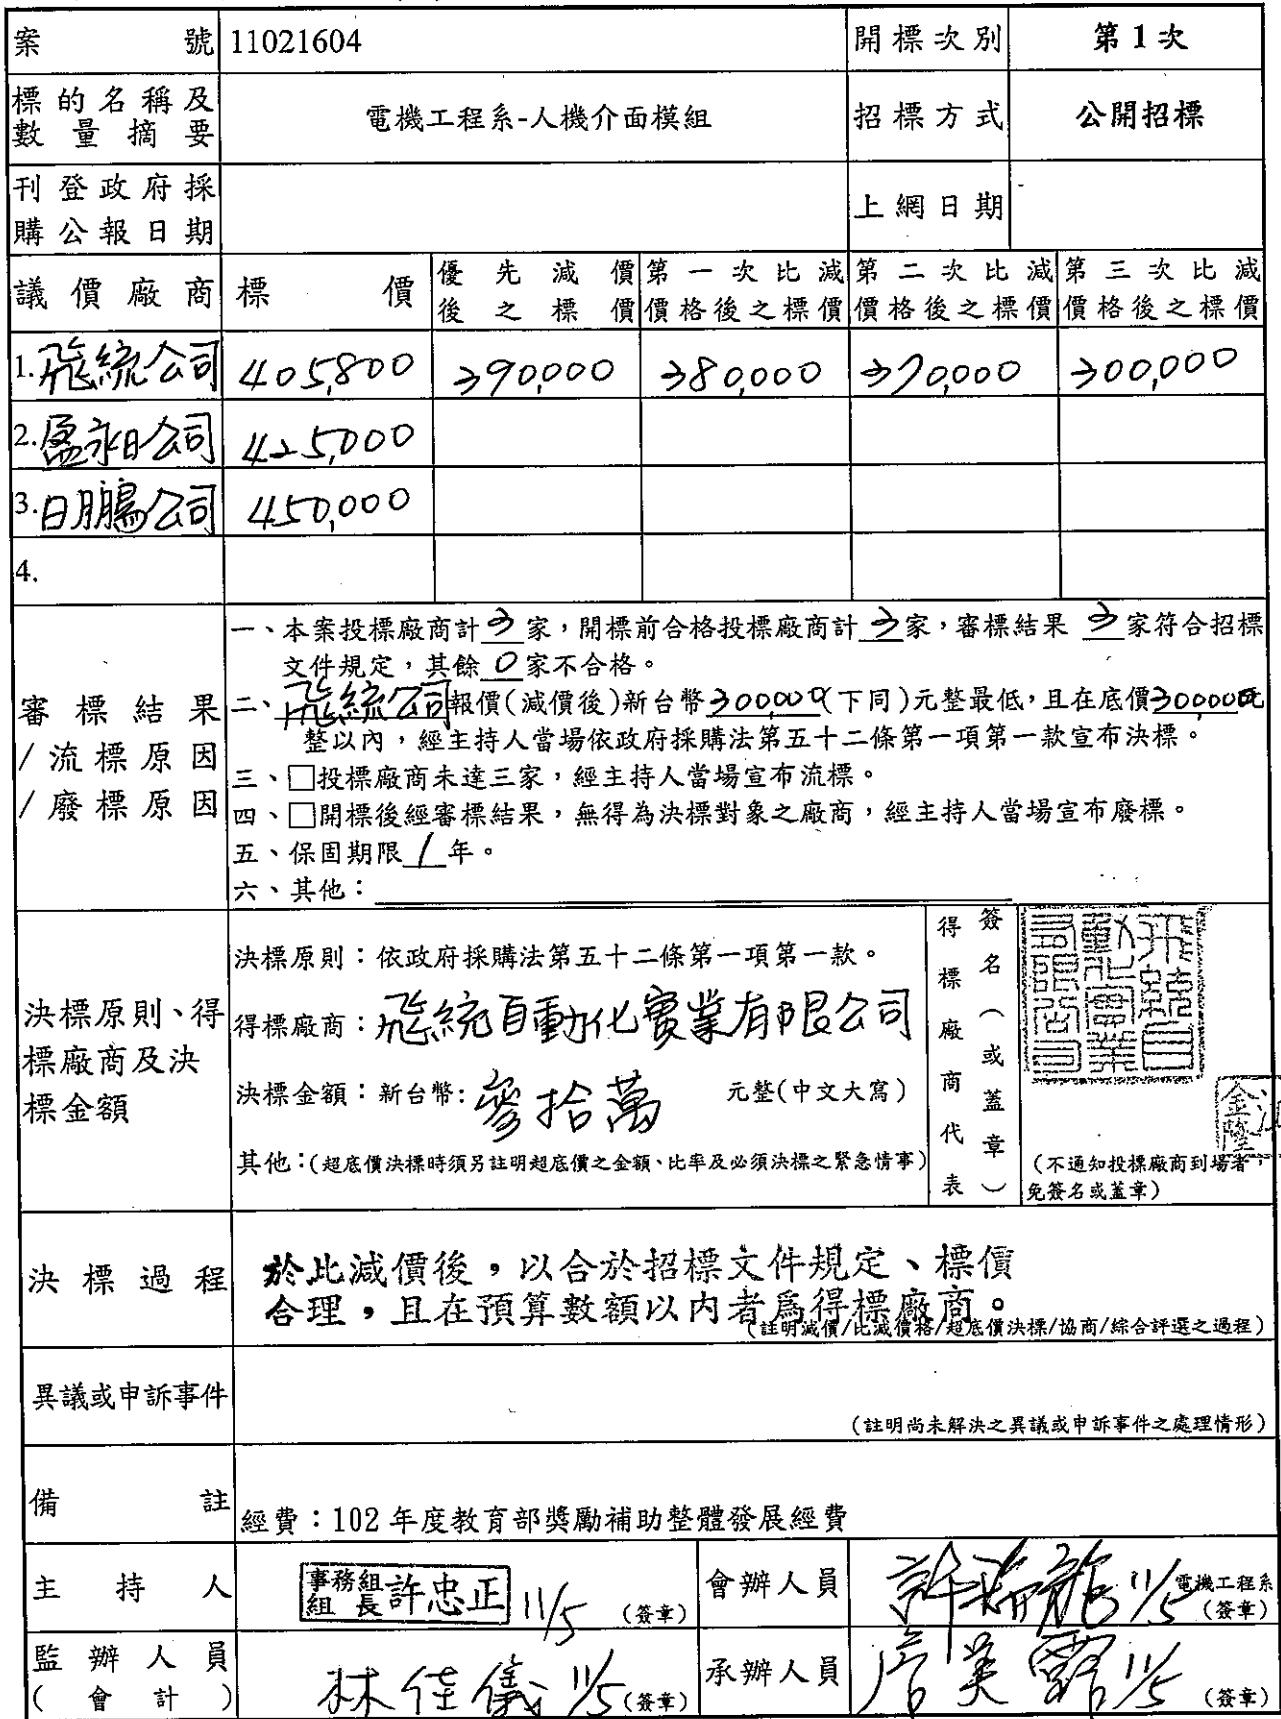 案號 11021604 開標次別 第1次
標的名稱及
數量摘要 電機工程系-人機介面模組 招標方式 公開招標
刊登政府採
購公報日期 上網日期
議價廠商 標價 優先減價後之標價 第一次比減價格後之標價 第二次比減價格後之標價 第三次比減價格後之標價
1.飛統公司 405,800 390,000 380,000 370,000 300,000
2.盈永日公司 425,000
3.日鵬公司 450,000
4.
審標結果
/流標原因
/廢標原因
一、本案投標廠商計3家,開標前合格投標廠商計3家,審標結果 3家符合招標
文件規定,其餘0家不合格。
二、飛統公司報價(減價後)新台幣300,000(下同)元整最低,且在底價300,000元
整以內,經主持人當場依政府採購法第五十二條第一項第一款宣布決標。
三、□投標廠商未達三家,經主持人當場宣布流標。
四、□開標後經審標結果,無得為決標對象之廠商,經主持人當場宣布廢標。
五、保固期限1年。
六、其他:
決標原則、得
標廠商及決
標金額
決標原則:依政府採購法第五十二條第一項第一款。
得標廠商:飛統自動化實業有限公司
決標金額:新台幣:參拾萬 元整(中文大寫)
其他:(超底價決標時須另註明超底價之金額、比率及必須決標之緊急情事)
得標廠商代表
簽名(或蓋章)
飛統自
動化實業
有限公司
金隆
(不通知投標廠商到場者,
免簽名或蓋章)
決標過程
於比減價後,以合於招標文件規定、標價
合理,且在預算數額以內者為得標廠商。
(註明減價/比減價格/超底價決標/協商/綜合評選之過程)
異議或申訴事件
(註明尚未解決之異議或申訴事件之處理情形)
備註 經費:102年度教育部獎勵補助整體發展經費
主持人 事務組組長 許忠正 11/5 (簽章) 會辦人員 11/5 電機工程系
(簽章)
監辦人員
(會計) 林佳儀 11/5 (簽章) 承辦人員 詹美露 11/5 (簽章)